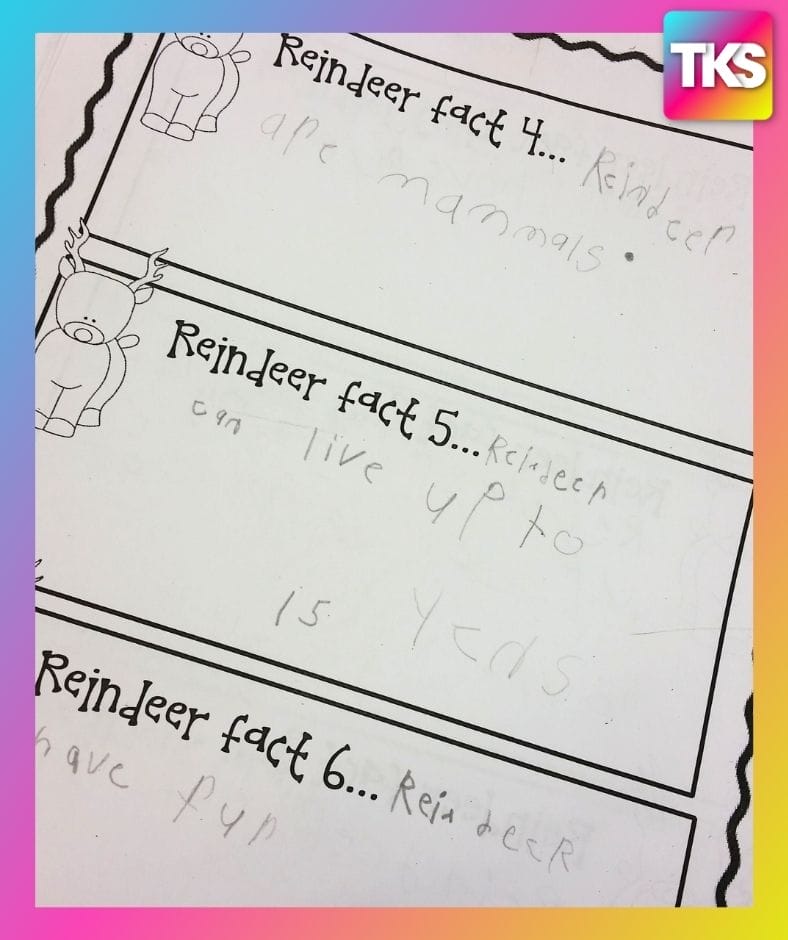 TKS
Reindeer fact 4... Reindeer
are mammals.
Reindeer fact 5... Reindeer
can live up to
15 years
Reindeer fact 6... Reindeer
have fun